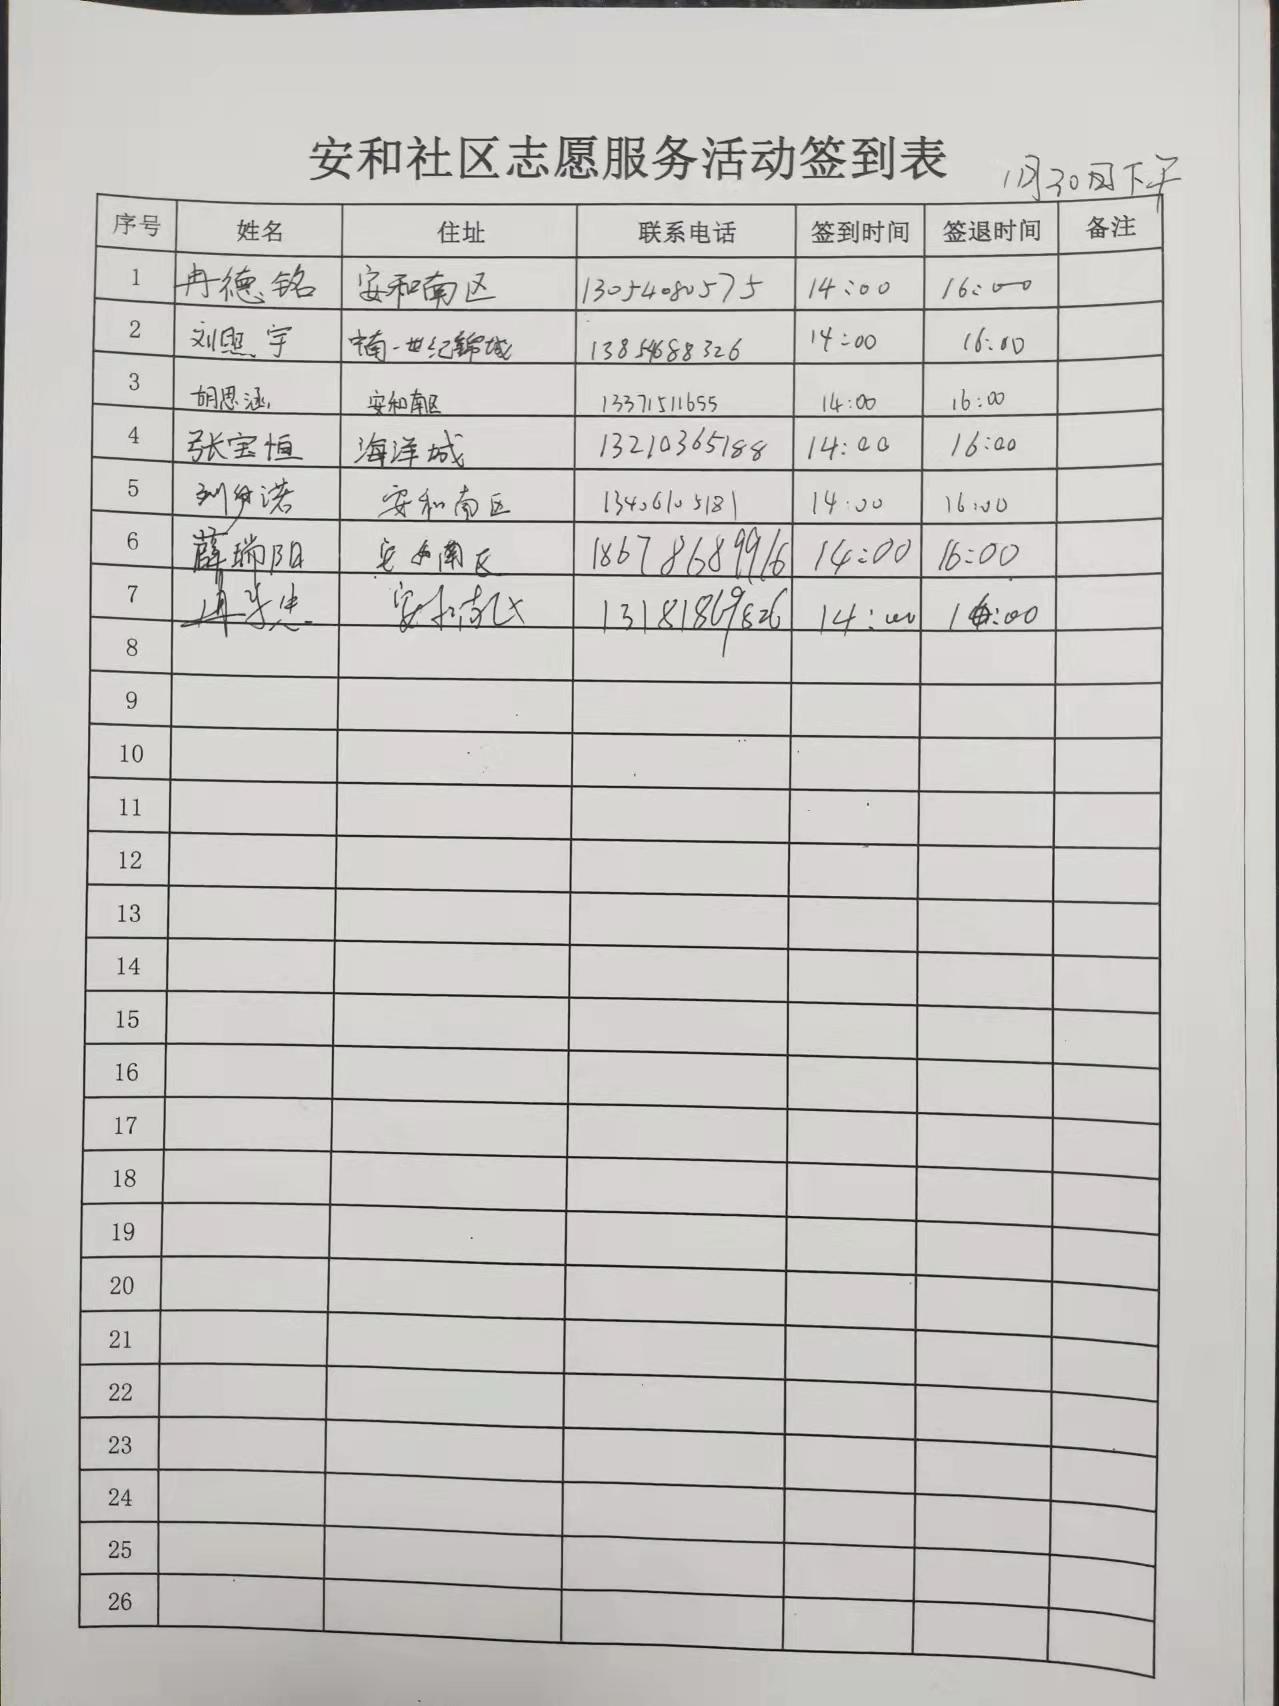 安和社区志愿服务活动签到表
1月30日下午
序号 姓名 住址 联系电话 签到时间 签退时间 备注
1 冉德铭 安和南区 13054080575 14:00 16:00
2 刘照宇 世纪锦城 13854688326 14:00 16:00
3 胡思涵 安和南区 13371511655 14:00 16:00
4 张宝恒 海洋城 13210365188 14:00 16:00
5 安和南区 13406105181 14:00 16:00
6 薛瑞阳 安和南区 18678689916 14:00 16:00
7 安和南区 13181869826 14:00 16:00
8
9
10
11
12
13
14
15
16
17
18
19
20
21
22
23
24
25
26